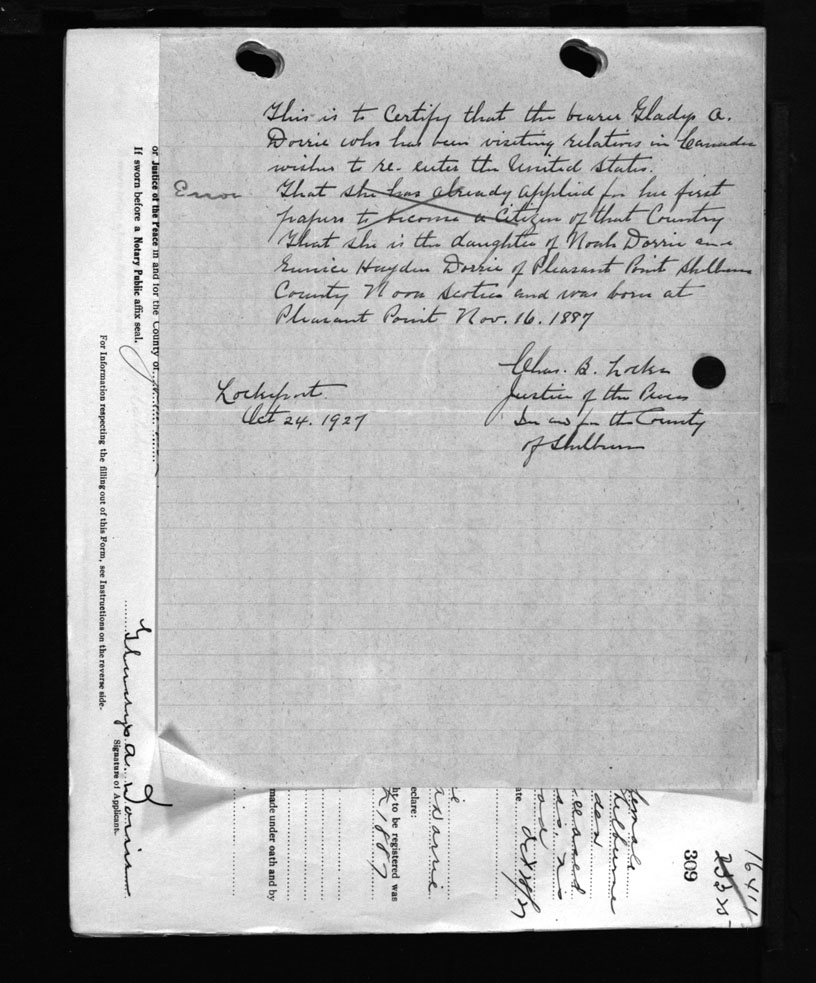 This is to Certify that the bearer Gladys A.
Dorrie who has been visiting relatives in Canada
wishes to re-enter the United States.
Error
That she has already applied for her first
papers to become a Citizen of that Country
That she is the daughter of Noah Dorrie and
Eunice Hayden Dorrie of Pleasant Point Shelburne
County Nova Scotia and was born at
Pleasant Point Nov. 16. 1887
Chas. B. Locke
Justice of the Peace
In and for the County
of Shelburne
Lockeport.
Oct 24. 1927
or Justice of the Peace in and for the County of
If sworn before a Notary Public affix seal.
For Information respecting the filling out of this Form, see Instructions on the reverse side.
Gladys A. Dorrie
Signature of Applicant.
made under oath and by
ht to be registered was
1887
eclare:
ate.
female
309
16411